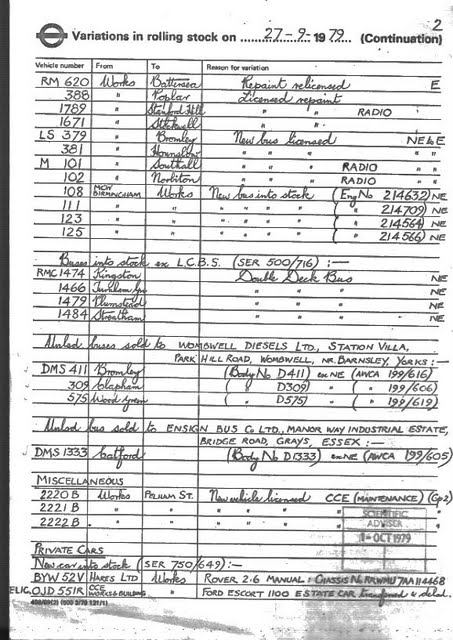 2
Variations in rolling stock on ....27-9-1979.. (Continuation)
Vehicle number From To Reason for variation
RM 620 Works Battersea Repaint relicensed E
388 " Poplar Licensed repaint
1789 " Stamford Hill " " RADIO
1671 " Stockwell " "
LS 379 " Bromley New bus licensed NE & E
381 " Hounslow " " " " "
M 101 " Southall " " RADIO " "
102 " Norbiton " " RADIO " "
108 MCW BIRMINGHAM Works New bus into stock (Eng No 214632) NE
111 " " " " " ( " 214709) NE
123 " " " " " ( " 214564) NE
125 " " " " " ( " 214566) NE
Buses into stock ex L.C.B.S. (SER 500/716) :—
RMC 1474 Kingston Double Deck Bus NE
1466 Turnham Gn " " " NE
1479 Plumstead " " " NE
1484 Streatham " " " NE
Unlsd buses sold to WOMBWELL DIESELS LTD., STATION VILLA,
PARK HILL ROAD, WOMBWELL, NR. BARNSLEY, YORKS :—
DMS 411 Bromley (Body No D411) ex NE (AWCA 199/616)
309 Clapham ( " D309) " ( " 199/606)
575 Wood Green ( " D575) " ( " 199/619)
Unlsd bus sold to ENSIGN BUS CO LTD., MANOR WAY INDUSTRIAL ESTATE,
BRIDGE ROAD, GRAYS, ESSEX :—
DMS 1333 Catford (Body No D1333) ex NE (AWCA 199/605)
MISCELLANEOUS
2220 B Works PELHAM ST. New vehicle licensed CCE (MAINTENANCE) (Gp2)
2221 B " " " " " " "
2222 B " " " " " " "
SCIENTIFIC
ADVISER
1-OCT 1979
PRIVATE CARS
New car into stock (SER 750/649) :—
BYW 52V HARES LTD Works ROVER 2·6 MANUAL : CHASSIS No RRWMU7AA114468
OJD 551R CCE WORKS & BUILDING " FORD ESCORT 1100 ESTATE CAR transferred &